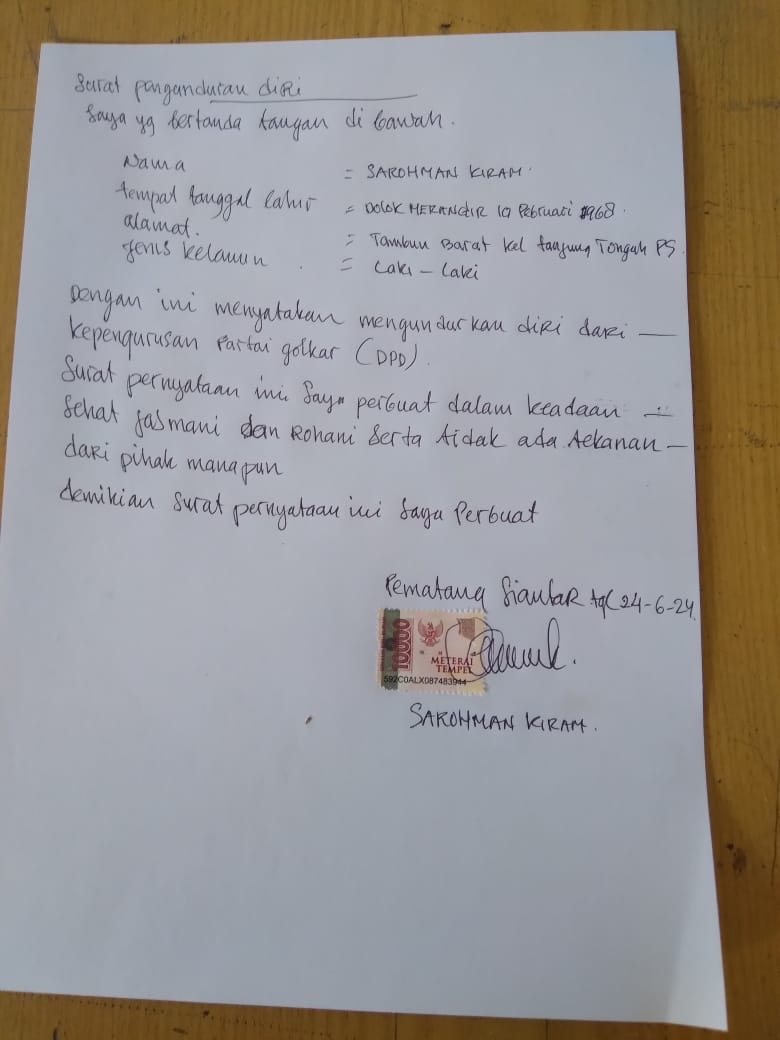 Surat pengunduran diri
Saya yg bertanda tangan di bawah.
Nama = SAROHMAN KIRAM.
tempat tanggal lahir = DOLOK MERANGIR 10 Pebruari 1968.
alamat. = Tambun Barat kel tanjung Tongah PS.
jenis kelamin = Laki - Laki
Dengan ini menyatakan mengundurkan diri dari —
kepengurusan Partai golkar (DPD).
Surat pernyataan ini Saya perbuat dalam keadaan —
sehat jasmani dan Rohani Serta tidak ada tekanan —
dari pihak manapun
demikian Surat pernyataan ini Saya Perbuat
Pematang SiantaR tgl 24-6-24.
10000
METERAI
TEMPEL
592C0ALX087483944
SAROHMAN KIRAM.